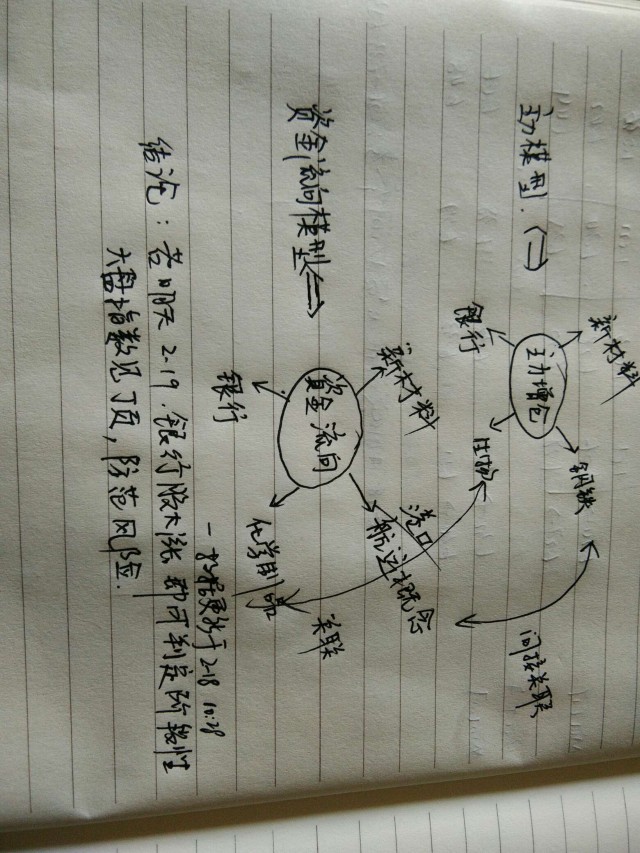 主力模型.
新材料
银行
主力增仓
生物
钢铁
间接关联
资金流向模型
新材料
银行
资金流向
港口
航运概念
化学制品
关联
—数据更新于 2-18 10:28
结论：若明天 2.19. 银行股大涨 即可判定阶段性
大盘指数见顶，防范风险.